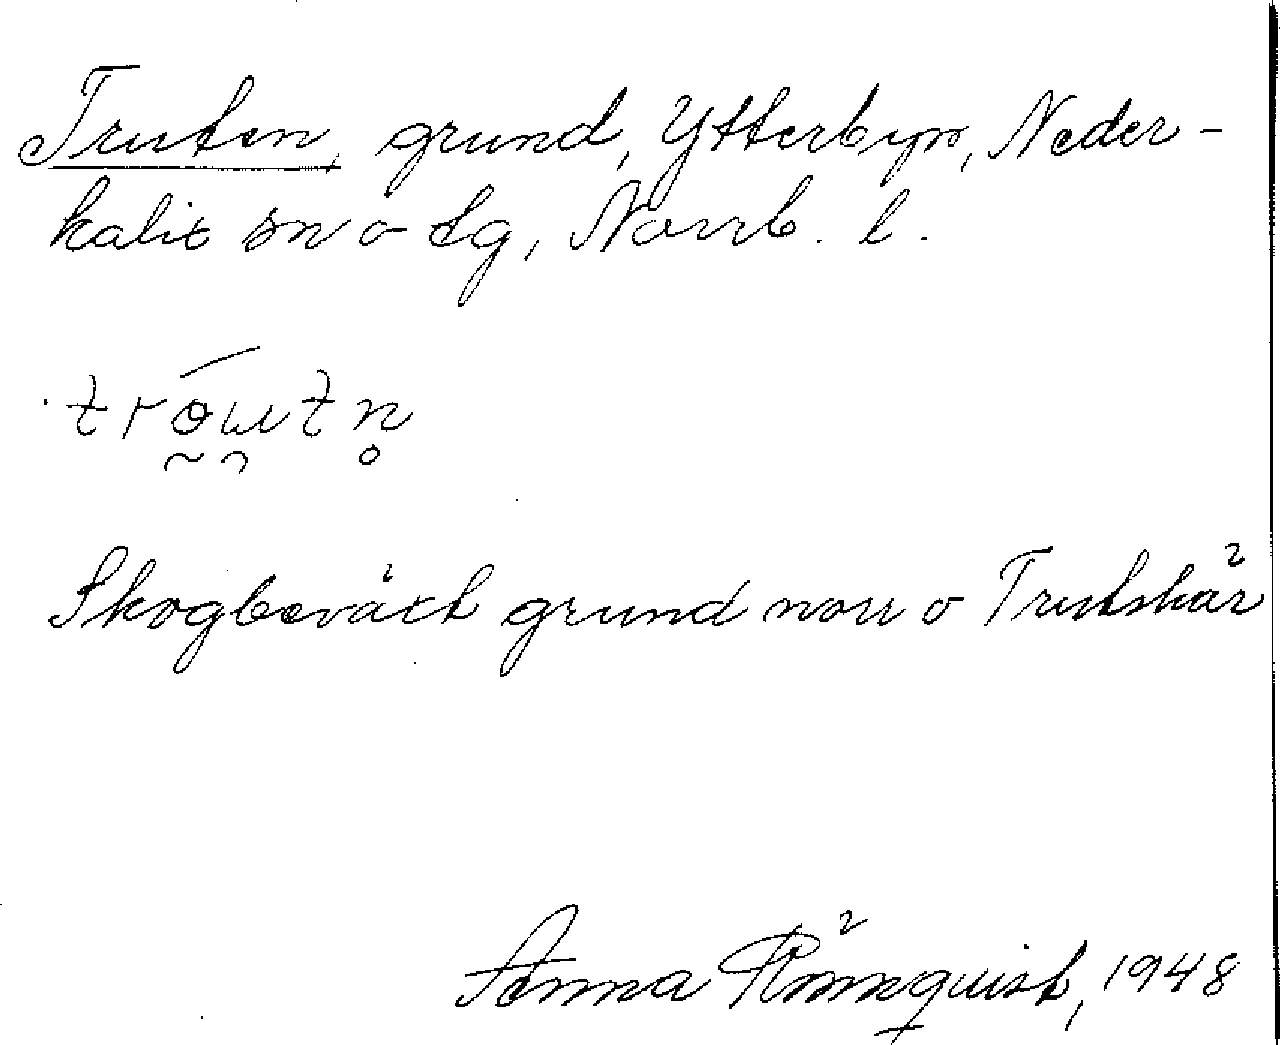 Truten, grund, Ytterbyn, Neder-
kalix sn o tg, Norrb. l.
Skogbeväxt grund norr o Trutskär
Anna Rönnquist, 1948